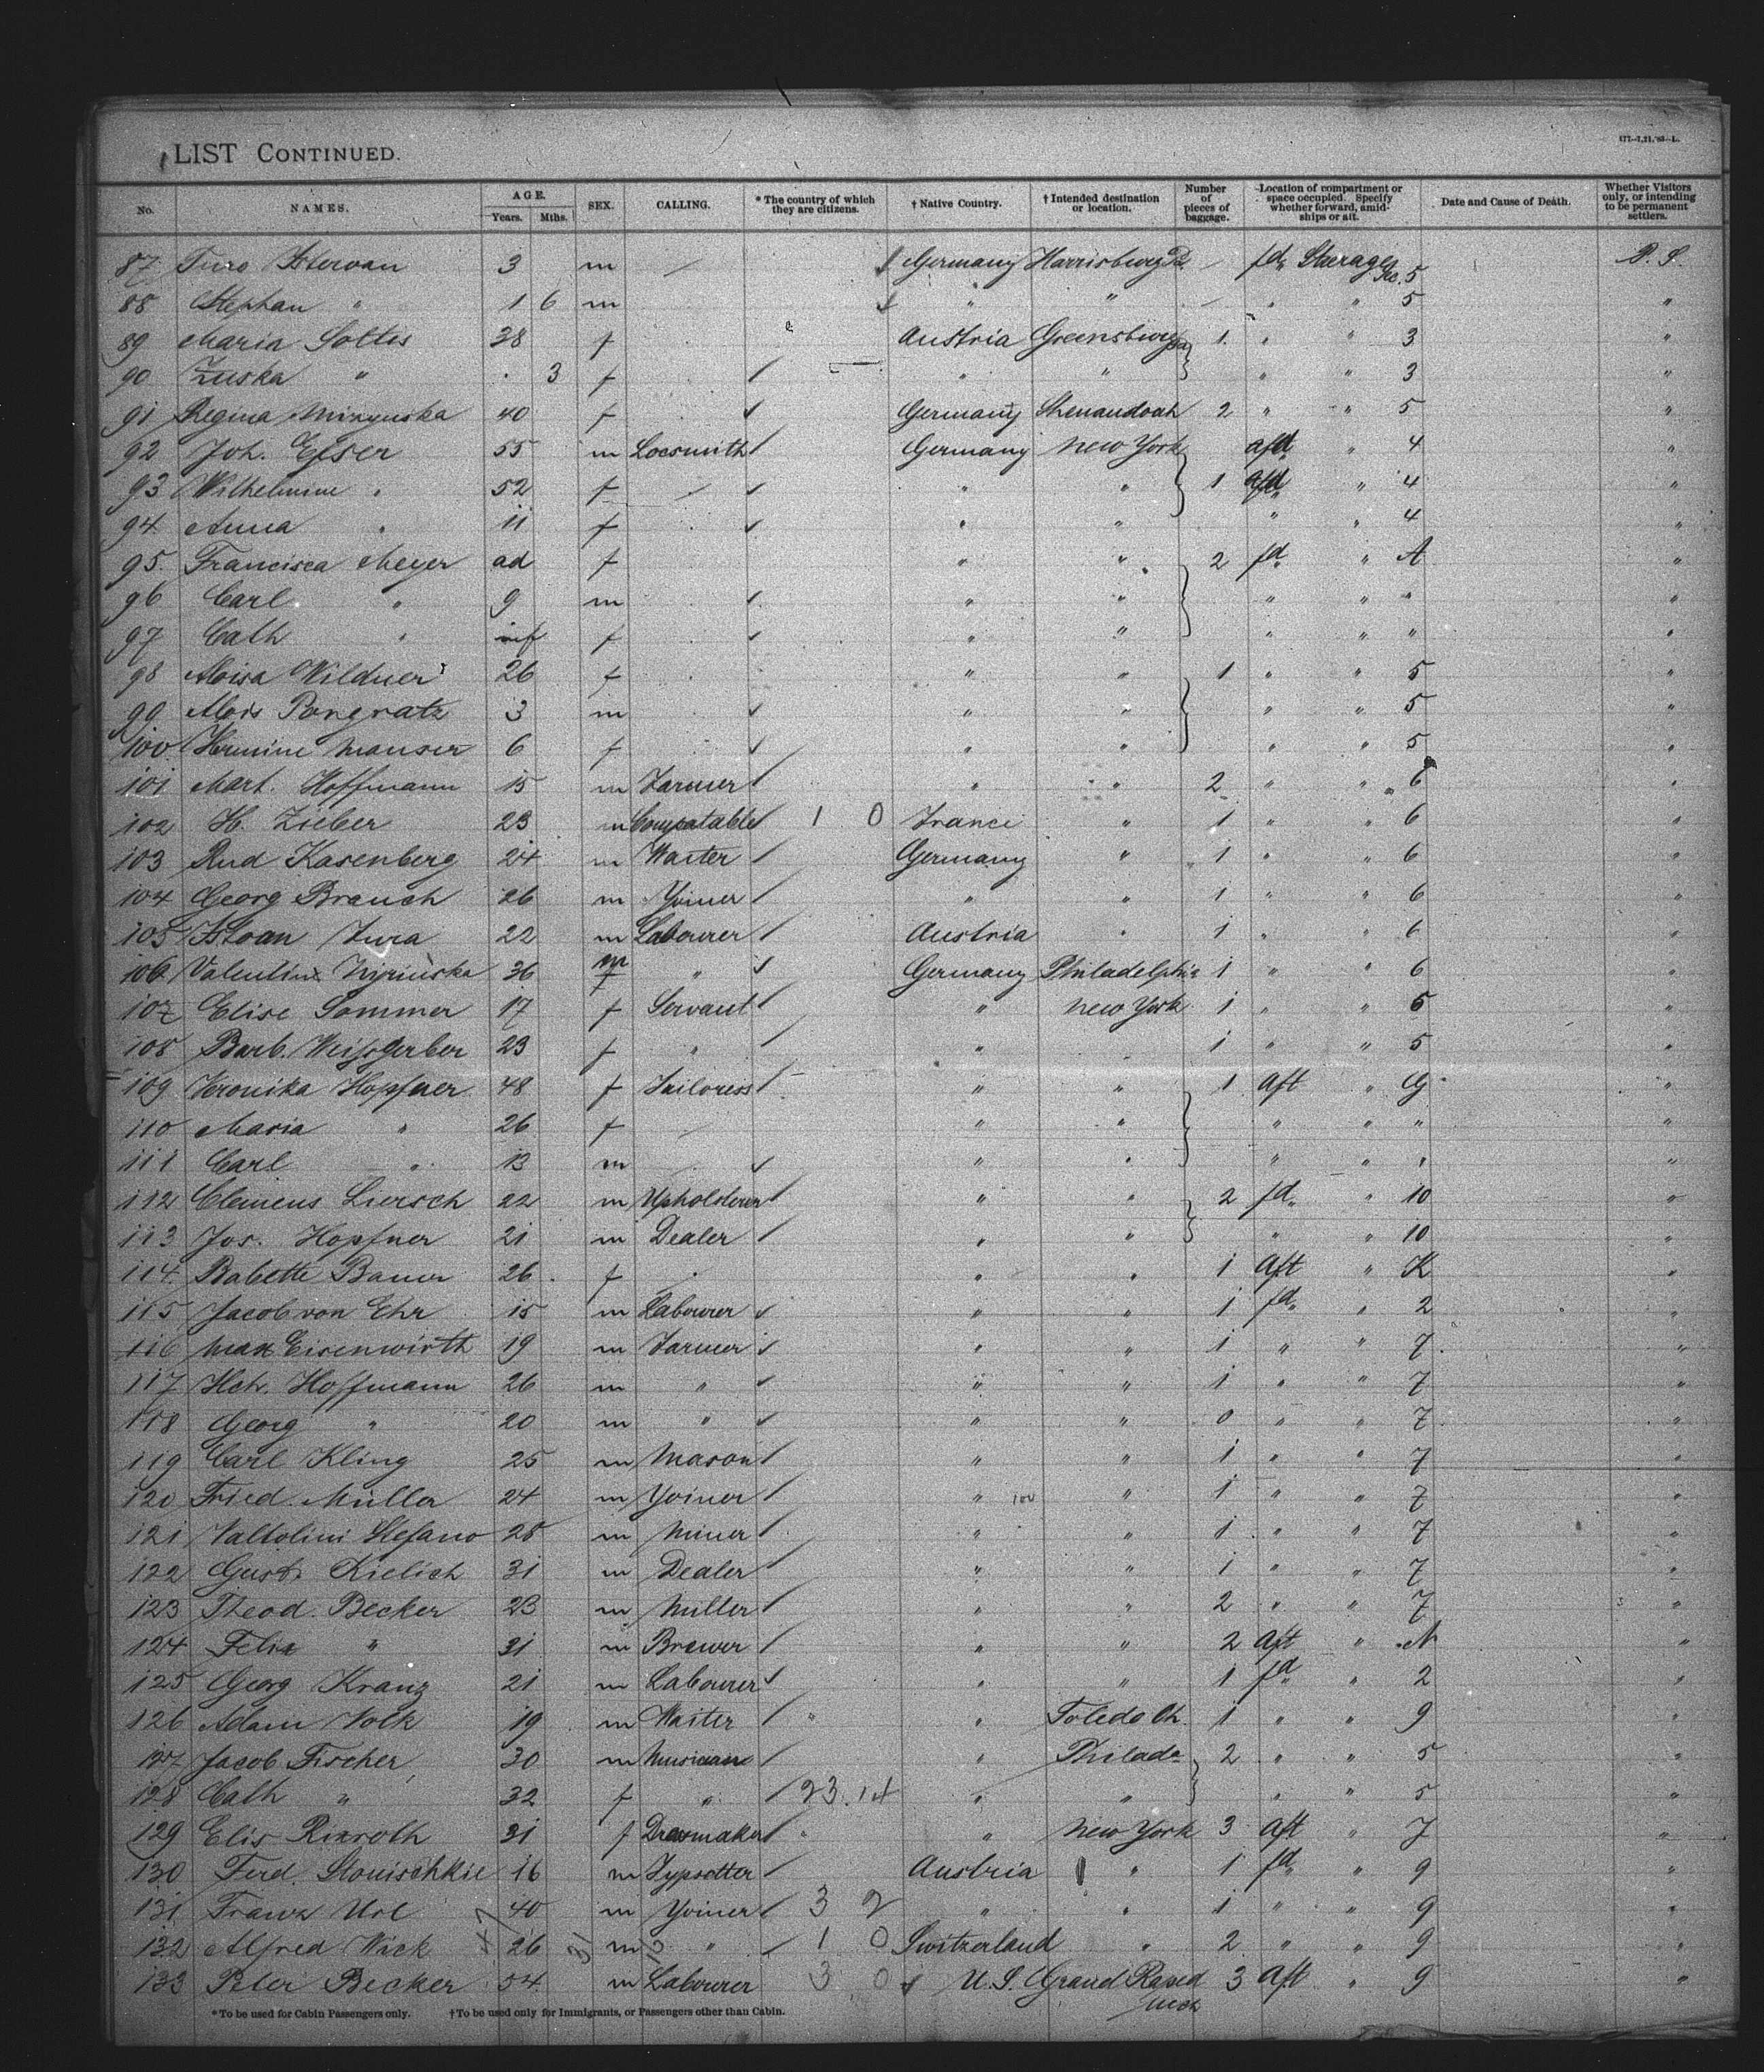 LIST CONTINUED.
177--7,21,'83--L.
No. NAMES. AGE. Years. Mths. SEX. CALLING. * The country of which they are citizens. † Native Country. † Intended destination or location. Number of pieces of baggage. Location of compartment or space occupied. Specify whether forward, amidships or aft. Date and Cause of Death. Whether Visitors only, or intending to be permanent settlers.
87 Juro 3 m Germany Harrisburg Pa. fd. Steerage Sec. 5 P. S.
88 Stephan " 1 6 m " " " " 5 "
89 Maria Soltis 38 f Austria Greensburg Pa 1 " " 3 "
90 Zuska " 3 f " " " " 3 "
91 Regina 40 f Germany Shenandoah 2 " " 5 "
92 Joh. Elser 55 m Locsmith Germany New York afd " 4 "
93 Wilhelmine " 52 f " " 1 afd " 4 "
94 Anna " 11 f " " " " 4 "
95. Francisca Meyer ad f " " 2 fd. " A "
96 Carl " 9 m " " " " " "
97 Cath " inf f " " " " " "
98 Aloisa Wildner 26 f " " 1 " " 5 "
99 Alois Pongratz 3 m " " " " 5 "
100 Hermine Mauser 6 f " " " " 5 "
101 Mart. Hoffmann 15 m Farmer " " 2 " " 6 "
102 H. Zieber 23 m 1 0 France " 1 " " 6 "
103 Rud Kasenberg 24 m Waiter Germany " 1 " " 6 "
104 Georg Brauch 26 m Yoiner " " 1 " " 6 "
105 Jura 22 m Labourer Austria " 1 " " 6 "
106 Valentin 36 m " Germany Philadelphia 1 " " 6 "
107 Elise Sommer 17 f Servant " New York 1 " " 5 "
108 Barb. Weissgerber 23 f " " 1 " " 5 "
109 Veronika Hopfner 48 f Tailoress " " 1 Aft " G "
110 Maria " 26 f " " " " " "
111 Carl " 13 m " " " " " "
112 Clemens Liersch 22 m Upholsterer " " 2 fd. " 10 "
113 Jos. Hopfner 21 m Dealer " " " " 10 "
114 Babette Bauer 26 f " " 1 Aft " K "
115 Jacob von Ehr 15 m Labourer " " 1 fd. " 2 "
116 Max Eisenwirth 19 m Farmer " " 1 " " 7 "
117 Hch. Hoffmann 26 m " " " 1 " " 7 "
118 Georg " 20 m " " " 0 " " 7 "
119 Carl Kling 25 m Mason " " 1 " " 7 "
120 Fried. Müller 24 m Yoiner " " 1 " " 7 "
121 Valtolini Stefano 28 m Miner " " 1 " " 7 "
122 Gust. Kielich 31 m Dealer " " 1 " " 7 "
123 Theod. Becker 23 m Miller " " 2 " " 7 "
124 Felix " 31 m Brewer " " 2 Aft " N "
125 Georg Kranz 21 m Labourer " " 1 fd. " 2 "
126 Adam Volk 19 m Waiter " " Toledo Oh. 1 " " 9 "
127 Jacob Fischer 30 m Musician " Philada 2 " " 5 "
128 Cath " 32 f " 23.14 " " " " 5 "
129 Elis Rixroth 31 f Dresmaker " " New York 3 Aft " J "
130 Ferd. 16 m Typsetter Austria " 1 fd. " 9 "
131 Franz Url 40 m Yoiner 3 2 " " 1 " " 9 "
132 Alfred Wick 26 m " 1 0 Switzerland " 2 " " 9 "
133 Peter Becker 54 m Labourer 3 0 U.S. Grand Rapid Mich 3 Aft " 9 "
*To be used for Cabin Passengers only. †To be used only for Immigrants, or Passengers other than Cabin.